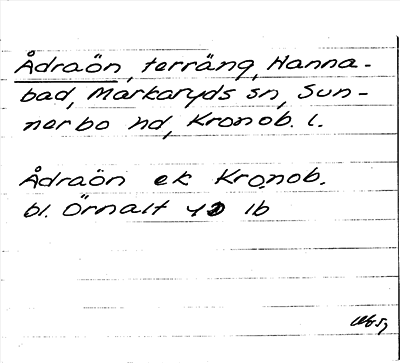 Ådraön, terräng, Hanna-
bad, Markaryds sn, Sun-
nerbo hd, Kronob. l.
Ådraön ek Kronob.
bl. Örnalt 4D 1b